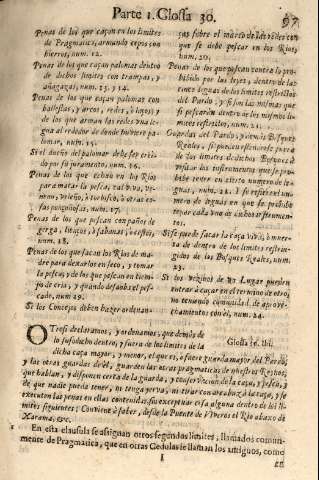 Parte 1. Glossa 30.
Penas de los que caçan en los limites
de Pragmatica, armando cepos con
hierros, num. 12.
Penas de los que caçan palomas dentro
de dichos limites con trampas, y
añagazas, num. 13. y 14.
Penas de los que caçan palomas con
ballestas, y arcos, redes, ò lazos; y
de los que arman las redes una le-
gua al rededor de donde huviere pa-
lomar, num. 15.
Si el dueño del palomar debe ser creì-
do por su juramento, num. 16.
Penas de los que echan en los Rios
para matar la pesca, cal viva, ve-
neno, veleño, ò torbisco, ò otras co-
sas ponçoñosas, num. 17.
Penas de los que pescan con paños de
gerga, lienços, ò sabanas, ò cestos,
num. 18.
Penas de los que sacan los Rios de ma-
dre para dexarlos en seco, y tomar
la pesca; y de los que pescan en tiem-
po de cria, y quando desovàre el pes-
cado, num. 19.
Si los Concejos deben hazer ordenan-
sas sobre el marco de las redes con
que se debe pescar en los Rios,
num. 20.
Penas de los que pescan contra lo pro-
hibido por las leyes, dentro de las
cinco leguas de los limites
del Pardo; y si son las mismas que
si pescassen dentro de los mismos li-
mites num. 21.
Guardas del Pardo, y demàs Bosques
Reales, si pueden
de los limites de dichos Bosques à
los instrumentos que se
num. 22.
Si se puede sacar la caça viva, ò muer-
ta de dentro de los limites
de los Bosques Reales, num.
23.
Si los vezinos de un Lugar pueden
entrar à caçar en el termino de otro,
no teniendo comunidad de aprove-
chamientos con èl, num. 24.
Otrosi declaramos, y ordenamos, que demàs de
lo susodicho dentro, y fuera de los limites de la
dicha caça mayor, y menor, el que es, ò fuere guarda mayor del Pardo,
y las otras guardas de èl, guarden las otras pragmaticas de nuestros Reynos,
que hablan, y disponen cerca de la guarda, y conservacion de la caça, y pesca, y
de que nadie pueda tener, ni tenga perro, ni tirar con arcabuz à la caça, y se
executen las penas en ellas contenidas, sin exceptuar cosa alguna dentro de los li-
mites siguientes; Conviene à saber, desde la Puente de Viveros el Rio abaxo de
Xarama, &c.
Glossa 30. tit.
1 En esta clausula se assignan otros segundos limites, llamados comun-
mente de Pragmatica, que en otras Cedulas se llaman los antiguos, como
I
en